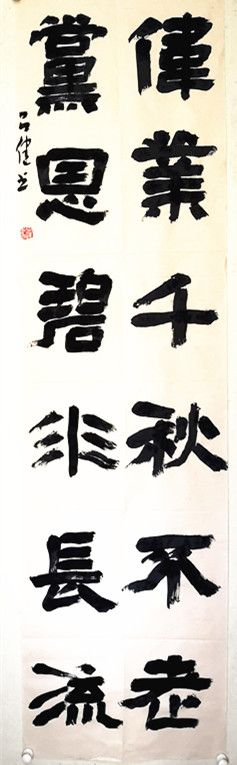 偉業千秋不老
黨恩碧水長流
吕健书